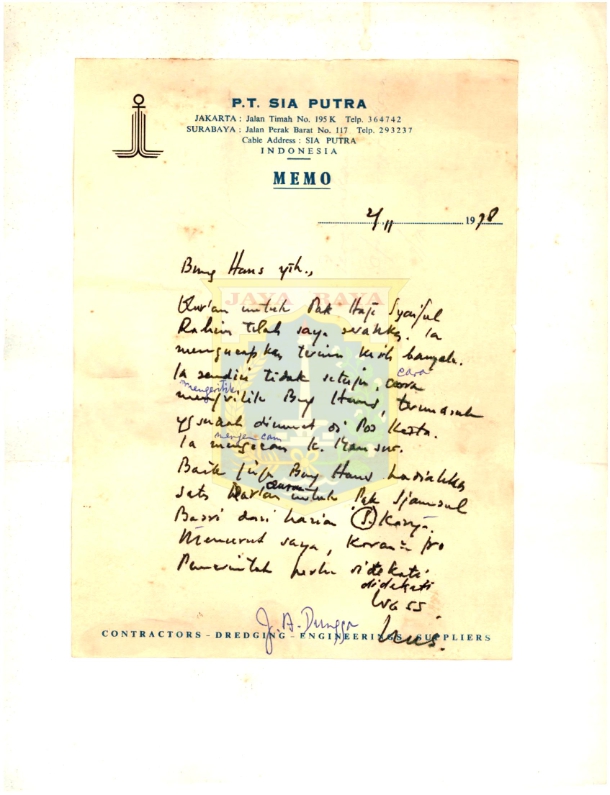 P.T. SIA PUTRA
JAKARTA : Jalan Timah No. 195 K Telp. 364742
SURABAYA : Jalan Perak Barat No. 117 Telp. 293237
Cable Address : SIA PUTRA
INDONESIA
MEMO
2/11 1978
Bung Hans yth.,
JAYA RAYA
Qur'an untuk Pak Haji Syaiful
Rahim telah saya serahkan. Ia
mengucapkan terima kasih banyak.
Ia sendiri tidak setuju cara
cara
mengeritik
mengritik Bung Hans, termasuk
yg sudah dimuat di Pos Kota.
mengencam
Ia mengecam K. Mansur.
Baik juga Bung Hans hadiahkan
satu Qur'an untuk Pak Sjamsul
Basri dari harian S. Karya.
Menurut saya, koran2 pro
Pemerintah perlu didekati
didekati
J. A. Dungga
CONTRACTORS - DREDGING - ENGINEERINGS SUPPLIERS